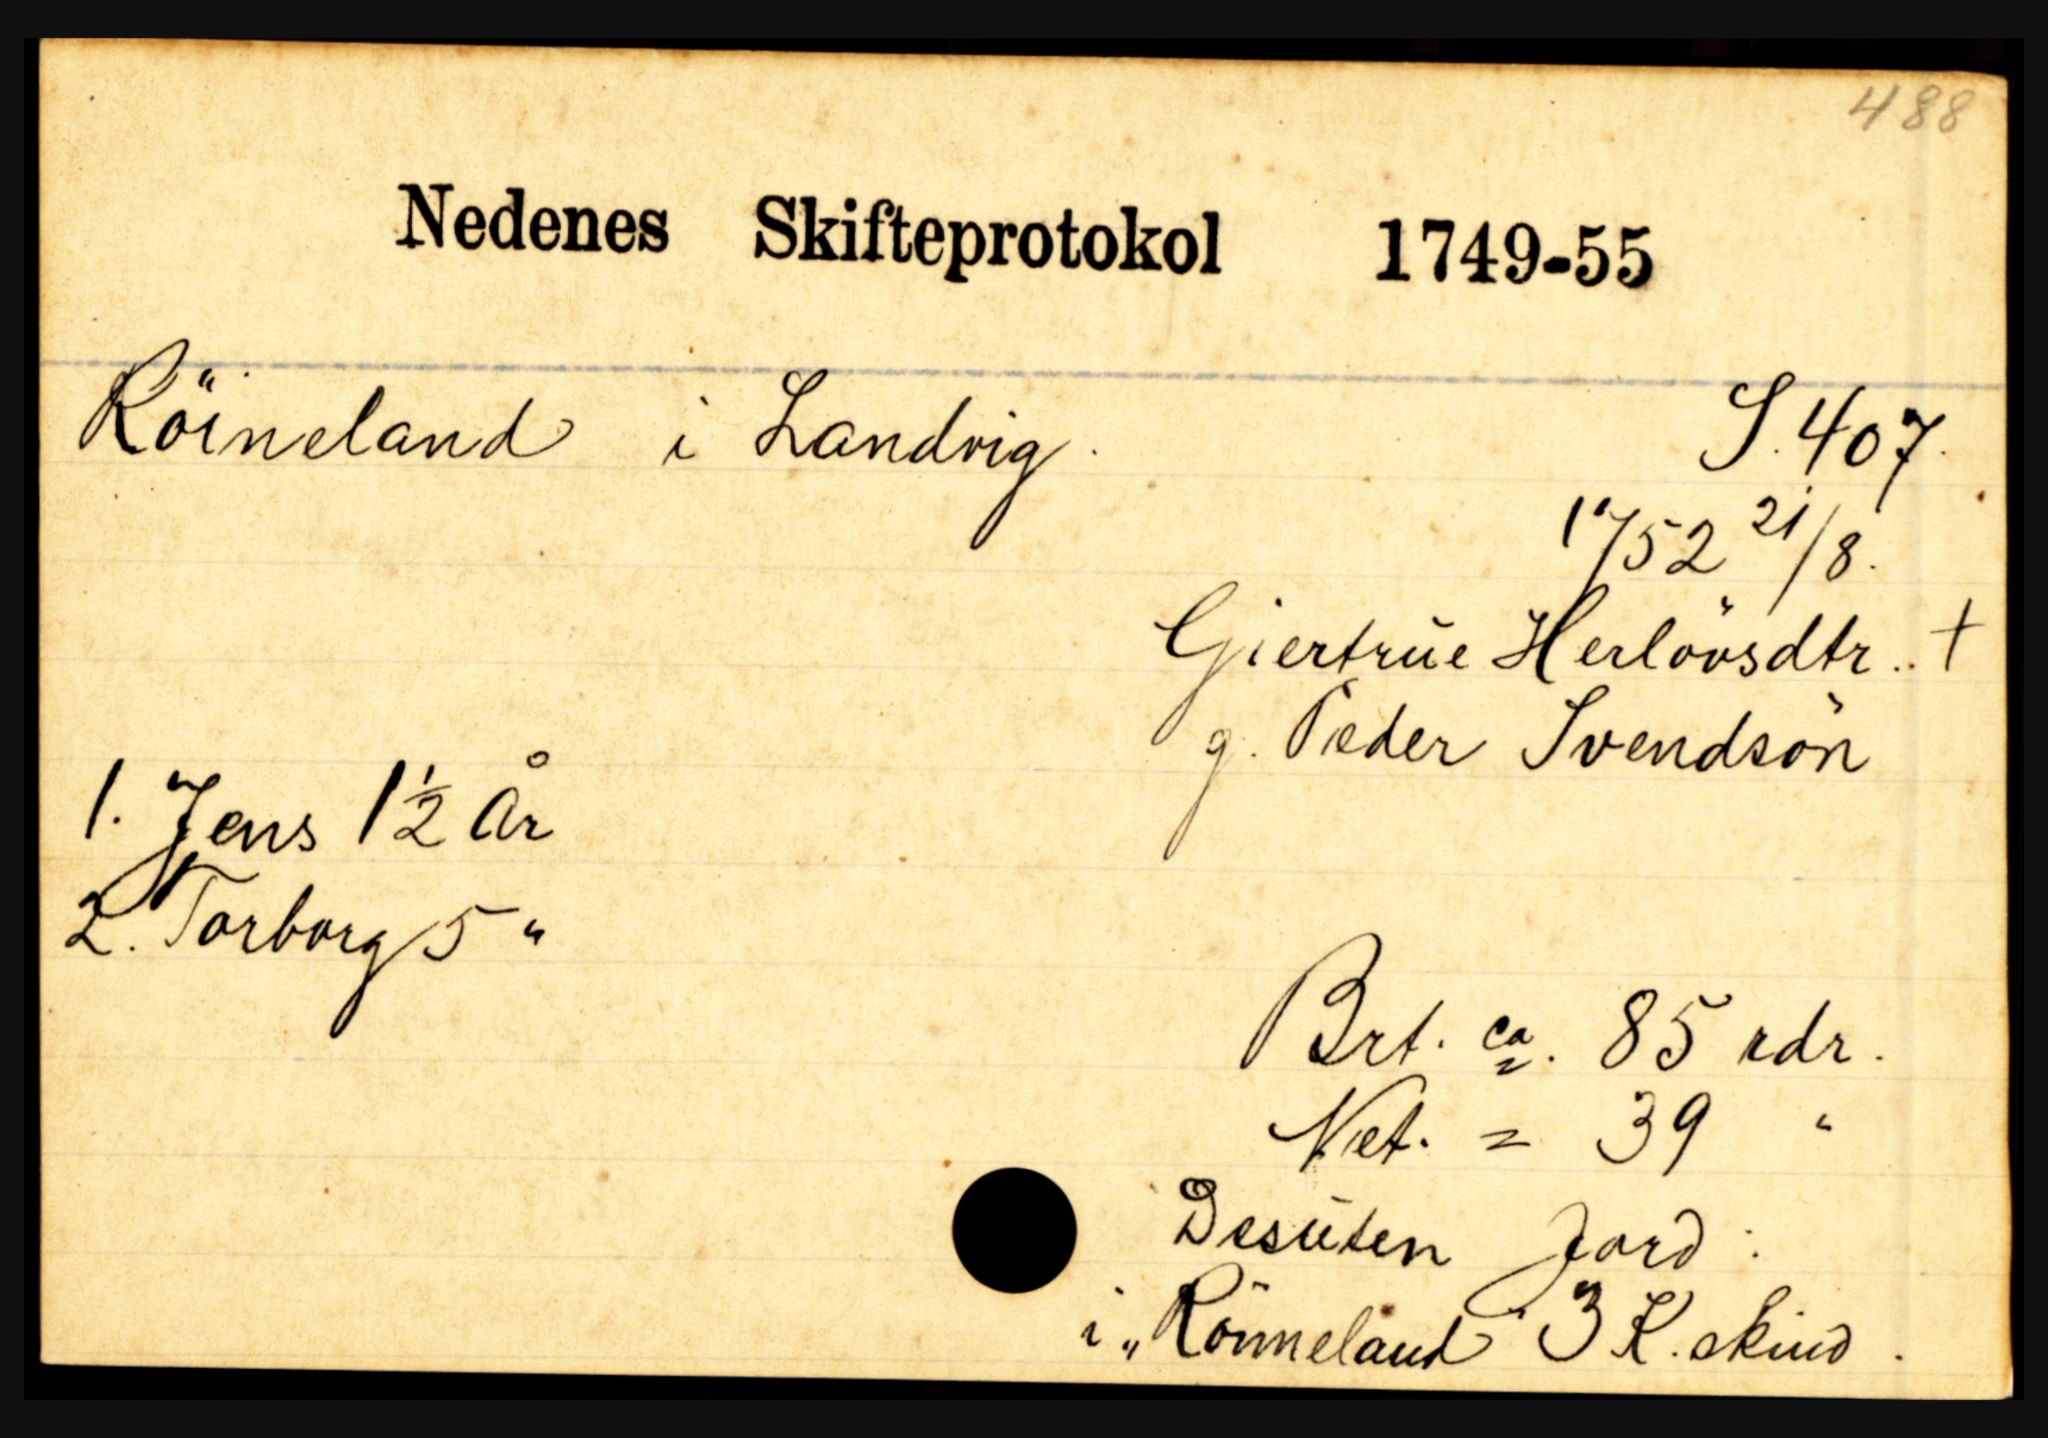 488
Nedenes Skifteprotokol 1749-55
Röineland i Landvig.
S. 407.
1752 21/8.
Giertrŭe Herlövsdtr.. †
g. Peder Svendsön
1. Jens 1½ År
2. Torborg 5 "
Brt. ca. 85 rdr.
Net. = 39 "
Desŭten Jord:
i „Röineland" 3 K. skind.